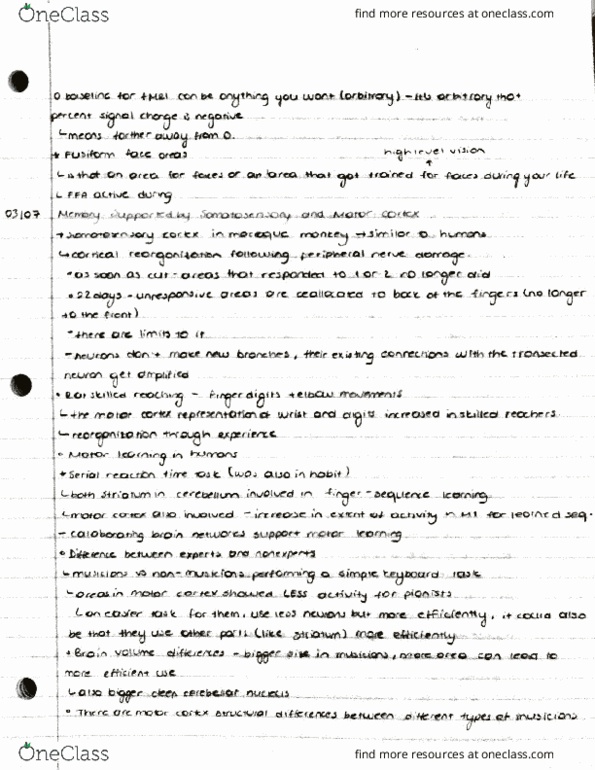 OneClass
find more resources at oneclass.com
o baseline for fMRI can be anything you want (arbitrary) - it's arbitrary that
percent signal change is negative
↳ means further away from 0.
* Fusiform face areas
high level vision
↳ is that an area for faces or an area that got trained for faces during your life
↳ FFA active during
03/07 Memory supported by Somatosensory and Motor cortex
* somatosensory cortex in macaque monkey → similar to humans
↳ cortical reorganization following peripheral nerve damage.
• as soon as cut - areas that responded to 1 or 2 no longer did
• 22 days - unresponsive areas are reallocated to back of the fingers (no longer
to the front)
• there are limits to it
- neurons don't make new branches, their existing connections with the transected
neuron get amplified
• Rat skilled reaching - finger digits + elbow movements
↳ the motor cortex representation of wrist and digits increased in skilled reachers
↳ reorganization through experience
• Motor learning in humans
* Serial reaction time task (was also in habit)
↳ both striatum in cerebellum involved in finger-sequence learning
↳ motor cortex also involved - increase in extent of activity in M1 for learned seq.
- calaborating brain networks support motor learning
• Difference between experts and nonexperts
↳ musicians vs non-musicians performing a simple keyboard task
↳ areas in motor cortex showed LESS activity for pianists
↳ an easier task for them, use less neurons but more efficiently, it could also
be that they use other parts (like striatum) more efficiently
* Brain volume differences - bigger size in musicians, more area can lead to
more efficient use
↳ also bigger deep cerebellar nucleus
• There are motor cortex structural differences between different types of musicians
OneClass
find more resources at oneclass.com